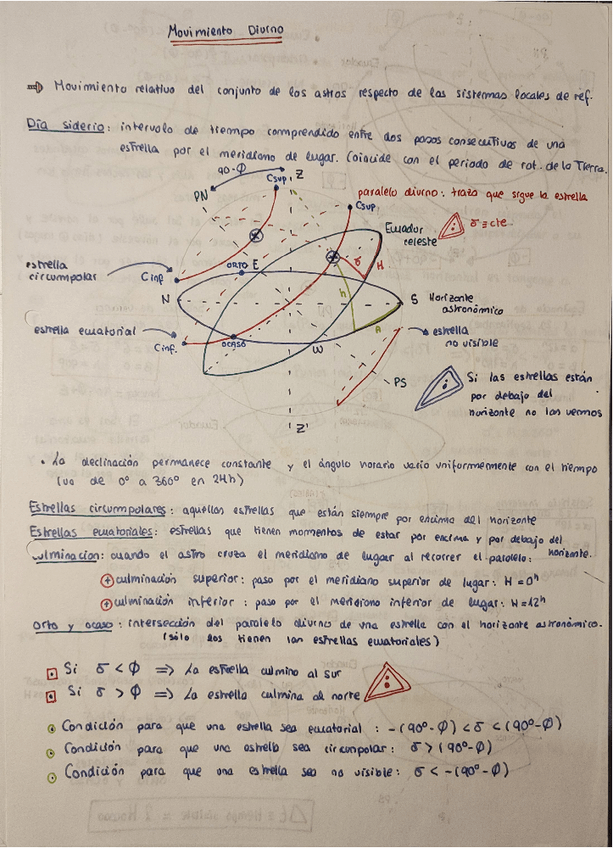 Movimiento Diurno
⇒ Movimiento relativo del conjunto de los astros respecto de las sistemas locales de ref.
Día siderio: intervalo de tiempo comprendido entre dos pasos consecutivos de una
estrella por el meridiano de lugar. Coincide con el periodo de rot. de la Tierra.
90-Φ
Z
PN
Csup
paralelo diurno: trazo que sigue la estrella
Csup
Ecuador
celeste
σ ≡ cte
estrella
circumpolar
ORTO
E
σ
H
C inf
N
h
S
Horizonte
astronómico
A
estrella ecuatorial
OCASO
Cinf.
W
estrella
no visible
PS
Si las estrellas están
por debajo del
horizonte no las vemos
Z'
• La declinación permanece constante y el ángulo horario varia uniformemente con el tiempo
(va de 0° a 360° en 24h)
Estrellas circumpolares: aquellas estrellas que están siempre por encima del horizonte
Estrellas ecuatoriales: estrellas que tienen momentos de estar por encima y por debajo del
horizonte.
culminacion: cuando el astro cruza el meridiano de lugar al recorrer el paralelo:
+ culminación superior: paso por el meridiano superior de lugar: H = 0h
+ culminación inferior: paso por el meridiano inferior de lugar: H = 12h
Orto y ocaso: intersección del paralelo diurno de una estrella con el horizonte astronómico.
(sólo los tienen las estrellas ecuatoriales)
Si σ < Φ => La estrella culmina al sur
Si σ > Φ => La estrella culmina al norte
Condición para que una estrella sea ecuatorial: -(90°-Φ) < σ < (90°-Φ)
Condición para que una estrella sea circunpolar: σ > (90°-Φ)
Condición para que una estrella sea no visible: σ < -(90°-Φ)